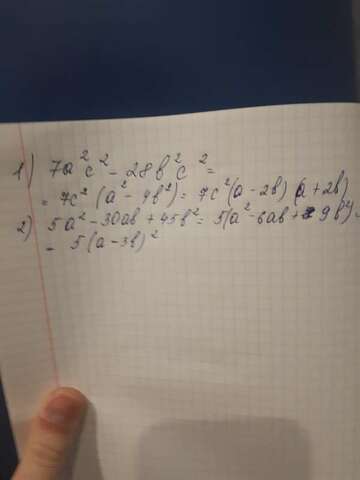 1) 7a²c² - 28в²c² =
= 7c² (a² - 4в²) = 7c² (a - 2в) (a + 2в)
2) 5a² - 30aв + 45в² = 5(a² - 6aв + 9в²) =
= 5 (a - 3в)²